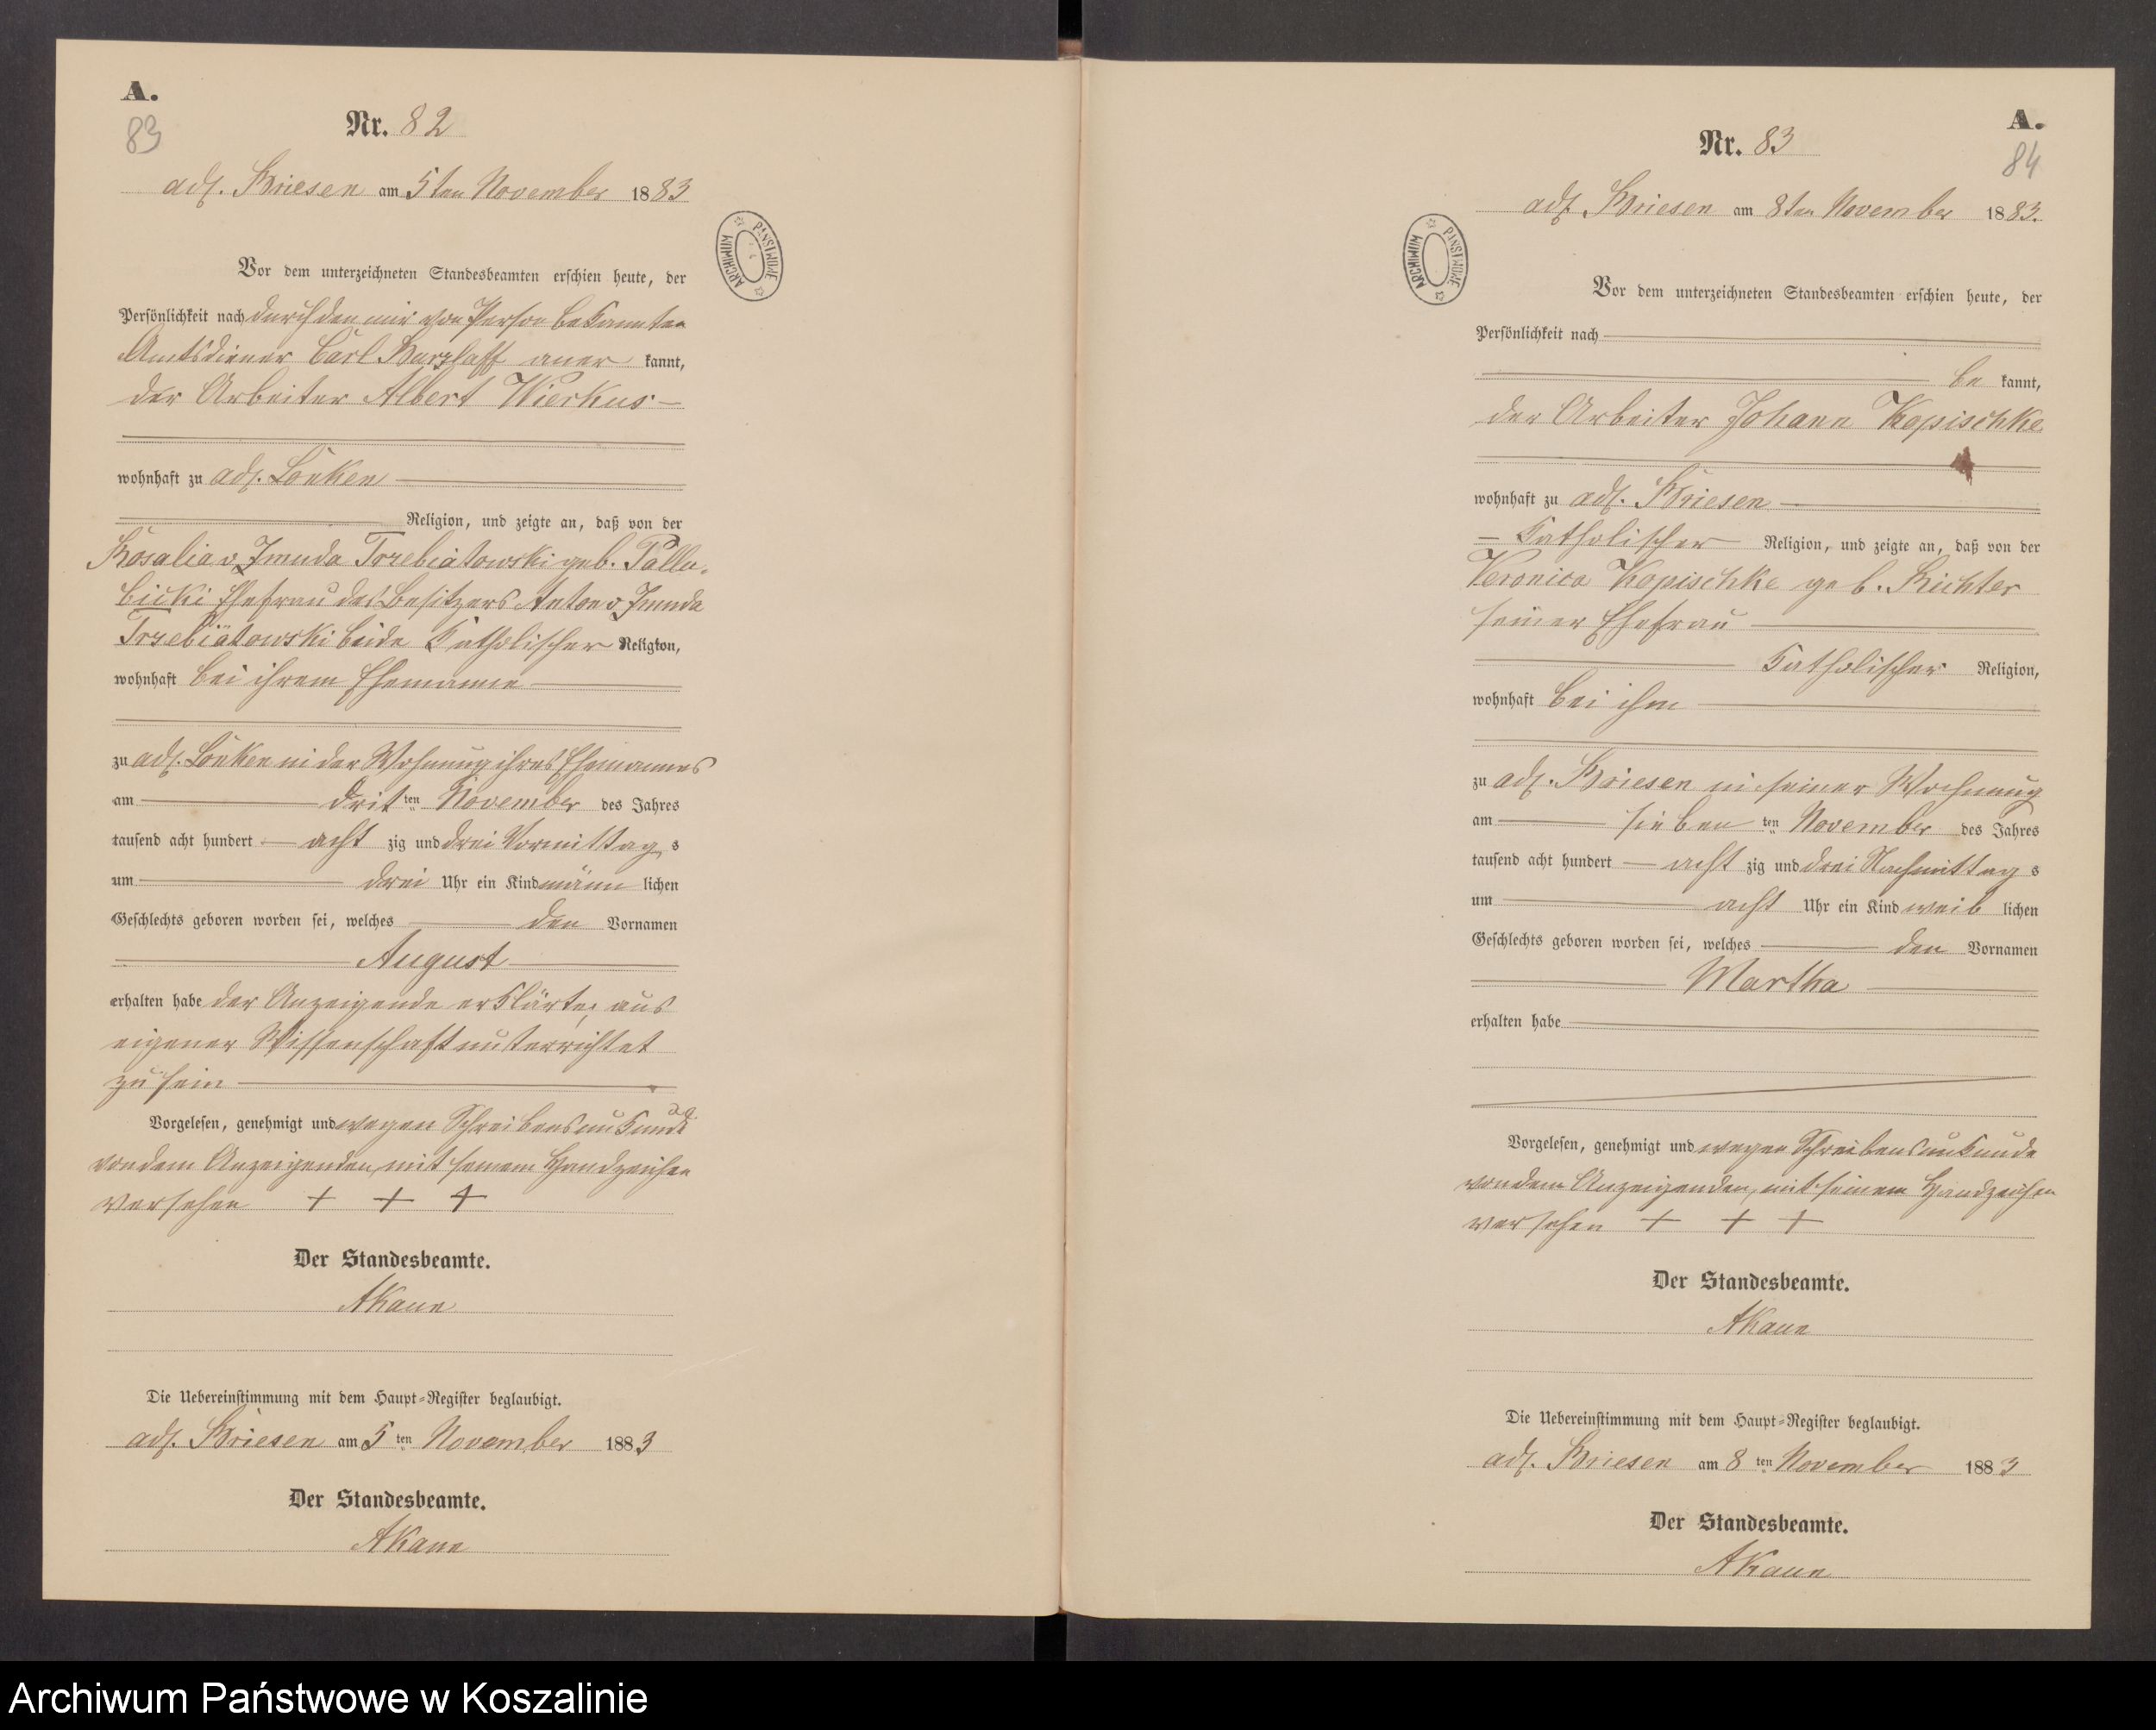 A.
83
Nr. 82
adl. Briesen am 5ten November 1883
ARCHIWUM PAŃSTWOWE
Vor dem unterzeichneten Standesbeamten erschien heute, der
Persönlichkeit nach durch den mir von Person bekannten
Amtsdiener Carl Burzlaff aner kannt,
der Arbeiter Albert Wierkus
wohnhaft zu adl. Lonken
Religion, und zeigte an, daß von der
Rosalia v. Zmuda Trzebiatowski geb. Pallu-
bicki Ehefrau des Besitzers Anton v. Zmuda
Trzebiatowski beide Katholischer Religion,
wohnhaft bei ihrem Ehemanne
zu adl. Lonken in der Wohnung ihres Ehemannes
am drit ten November des Jahres
tausend acht hundert acht zig und drei Vormittag s
um drei Uhr ein Kind männ lichen
Geschlechts geboren worden sei, welches den Vornamen
August
erhalten habe der Anzeigende erklärte, aus
eigener Wissenschaft unterrichtet
zu sein
Vorgelesen, genehmigt und wegen Schreibensunkunde
von dem Anzeigenden, mit seinem Handzeichen
versehen + + +
Der Standesbeamte.
AKaun
Die Uebereinstimmung mit dem Haupt-Register beglaubigt.
adl. Briesen am 5 ten November 1883
Der Standesbeamte.
AKaun
A.
84
Nr. 83
adl. Briesen am 8ten November 1883.
ARCHIWUM PAŃSTWOWE
Vor dem unterzeichneten Standesbeamten erschien heute, der
Persönlichkeit nach
be kannt,
der Arbeiter Johann Kopischke
wohnhaft zu adl. Briesen
Katholischer Religion, und zeigte an, daß von der
Veronica Kopischke geb. Richter
seiner Ehefrau
Katholischer Religion,
wohnhaft bei ihm
zu adl. Briesen in seiner Wohnung
am sieben ten November des Jahres
tausend acht hundert acht zig und drei Nachmittag s
um acht Uhr ein Kind weib lichen
Geschlechts geboren worden sei, welches den Vornamen
Martha
erhalten habe
Vorgelesen, genehmigt und wegen Schreibensunkunde
von dem Anzeigenden, mit seinem Handzeichen
versehen + + +
Der Standesbeamte.
AKaun
Die Uebereinstimmung mit dem Haupt-Register beglaubigt.
adl. Briesen am 8 ten November 1883
Der Standesbeamte.
AKaun
Archiwum Państwowe w Koszalinie